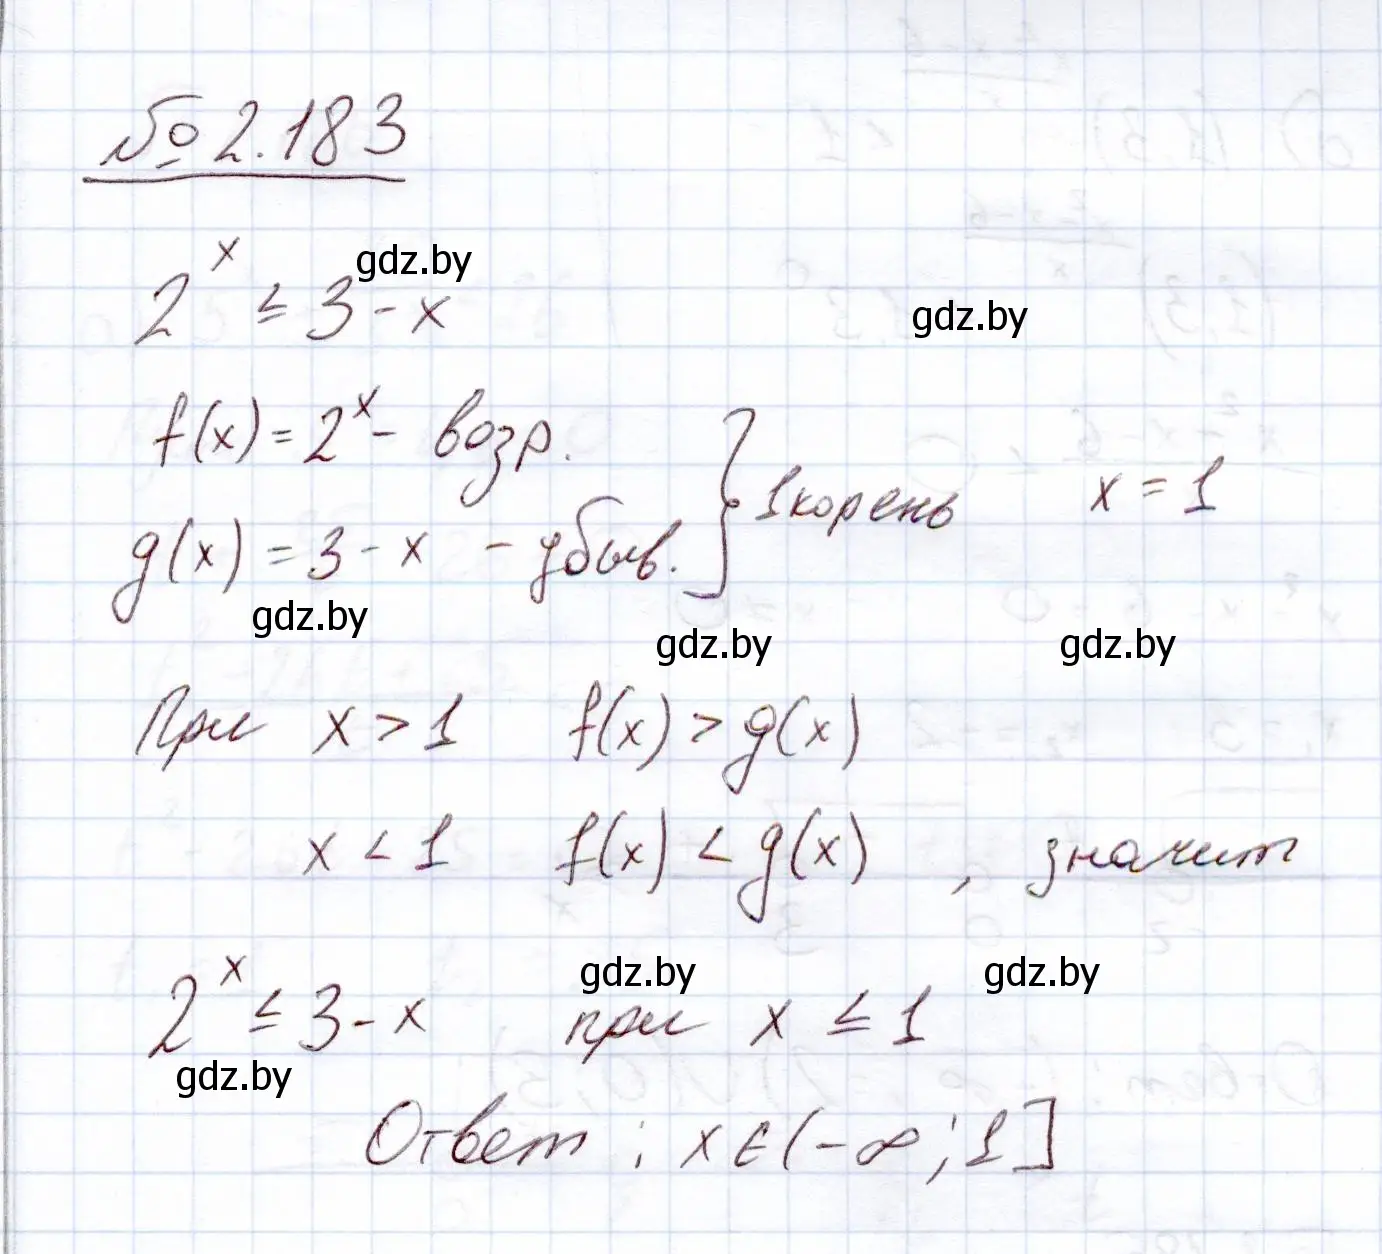 № 2.183
2^x ≤ 3 - x
gdz.by
gdz.by
f(x) = 2^x - возр.
g(x) = 3 - x - убыв.
} 1 корень x = 1
gdz.by
gdz.by
gdz.by
При x > 1 f(x) > g(x)
x < 1 f(x) < g(x) , значит
gdz.by
gdz.by
2^x ≤ 3 - x при x ≤ 1
gdz.by
Ответ: x ∈ (-∞; 1]